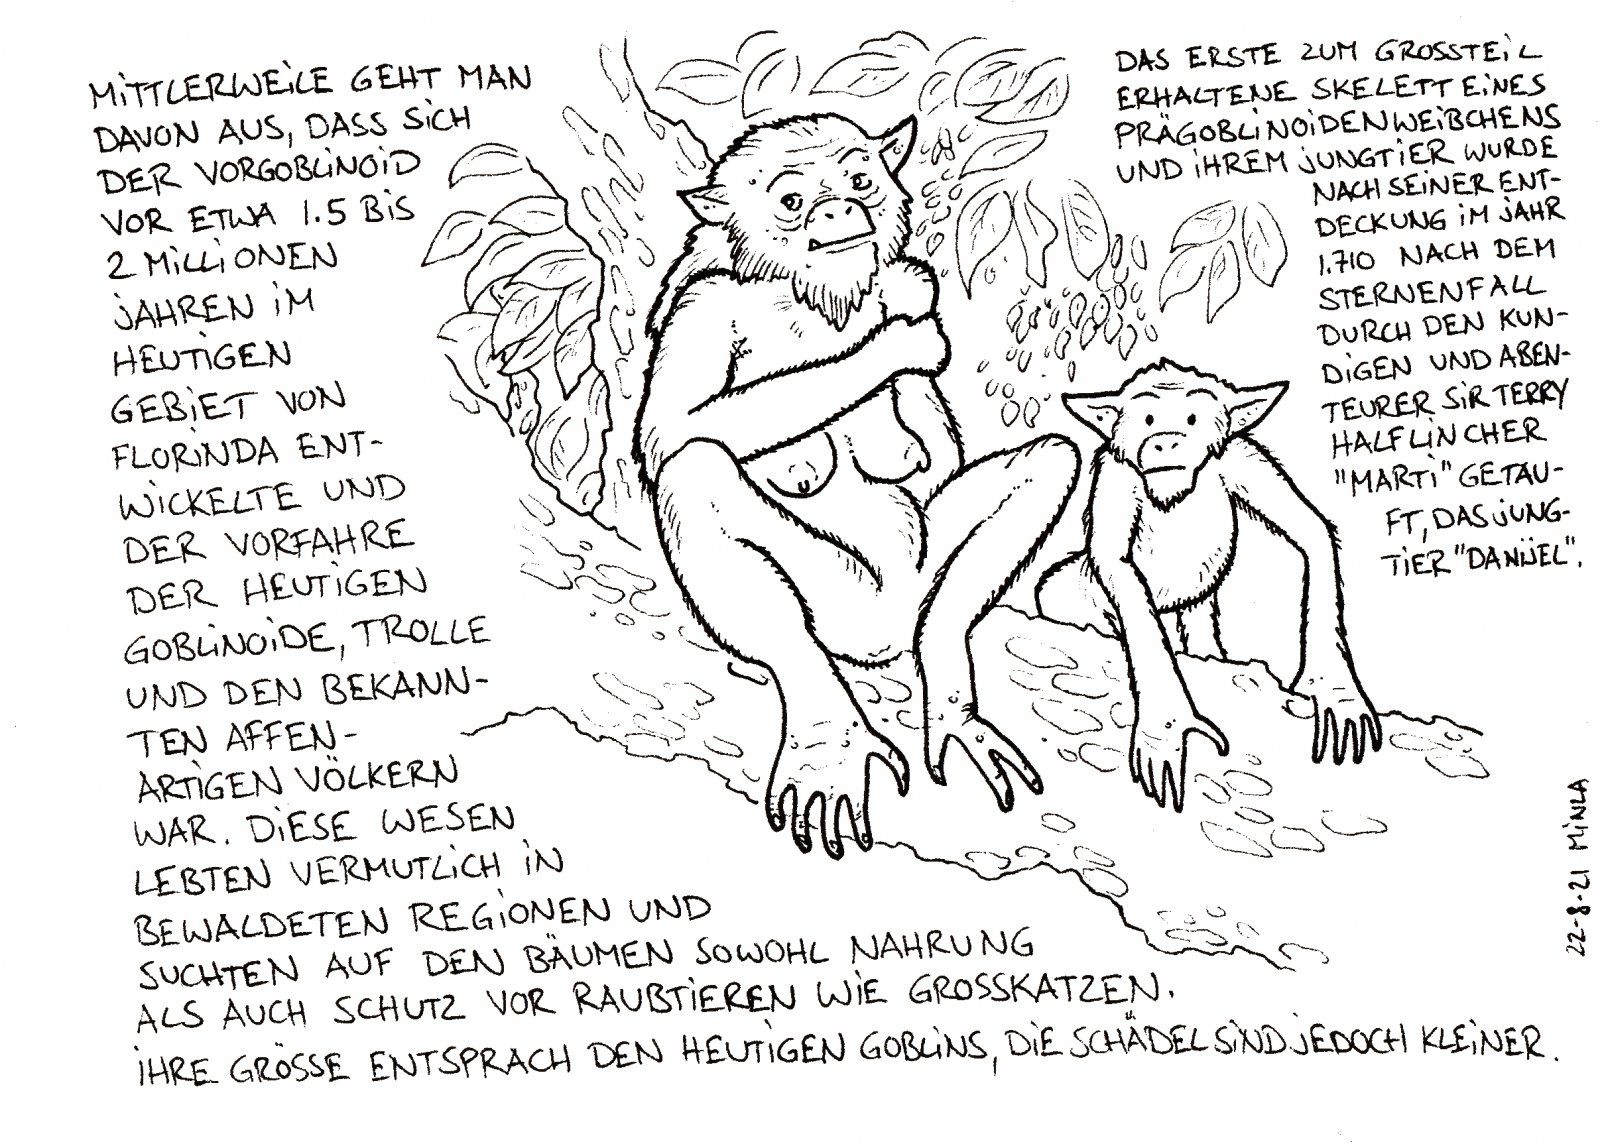 MITTLERWEILE GEHT MAN
DAVON AUS, DASS SICH
DER VORGOBLINOID
VOR ETWA 1.5 BIS
2 MILLIONEN
JAHREN IM
HEUTIGEN
GEBIET VON
FLORINDA ENT-
WICKELTE UND
DER VORFAHRE
DER HEUTIGEN
GOBLINOIDE, TROLLE
UND DEN BEKANN-
TEN AFFEN-
ARTIGEN VÖLKERN
WAR. DIESE WESEN
LEBTEN VERMUTLICH IN
BEWALDETEN REGIONEN UND
SUCHTEN AUF DEN BÄUMEN SOWOHL NAHRUNG
ALS AUCH SCHUTZ VOR RAUBTIEREN WIE GROSSKATZEN.
IHRE GRÖSSE ENTSPRACH DEN HEUTIGEN GOBLINS, DIE SCHÄDEL SIND JEDOCH KLEINER.
DAS ERSTE ZUM GROSSTEIL
ERHALTENE SKELETT EINES
PRÄGOBLINOIDEN WEIBCHENS
UND IHREM JUNGTIER WURDE
NACH SEINER ENT-
DECKUNG IM JAHR
1.710 NACH DEM
STERNENFALL
DURCH DEN KUN-
DIGEN UND ABEN-
TEURER SIR TERRY
HALFLINCHER
"MARTI" GETAU-
FT, DAS JUNG-
TIER "DANIJEL".
22-8-21 MINLA